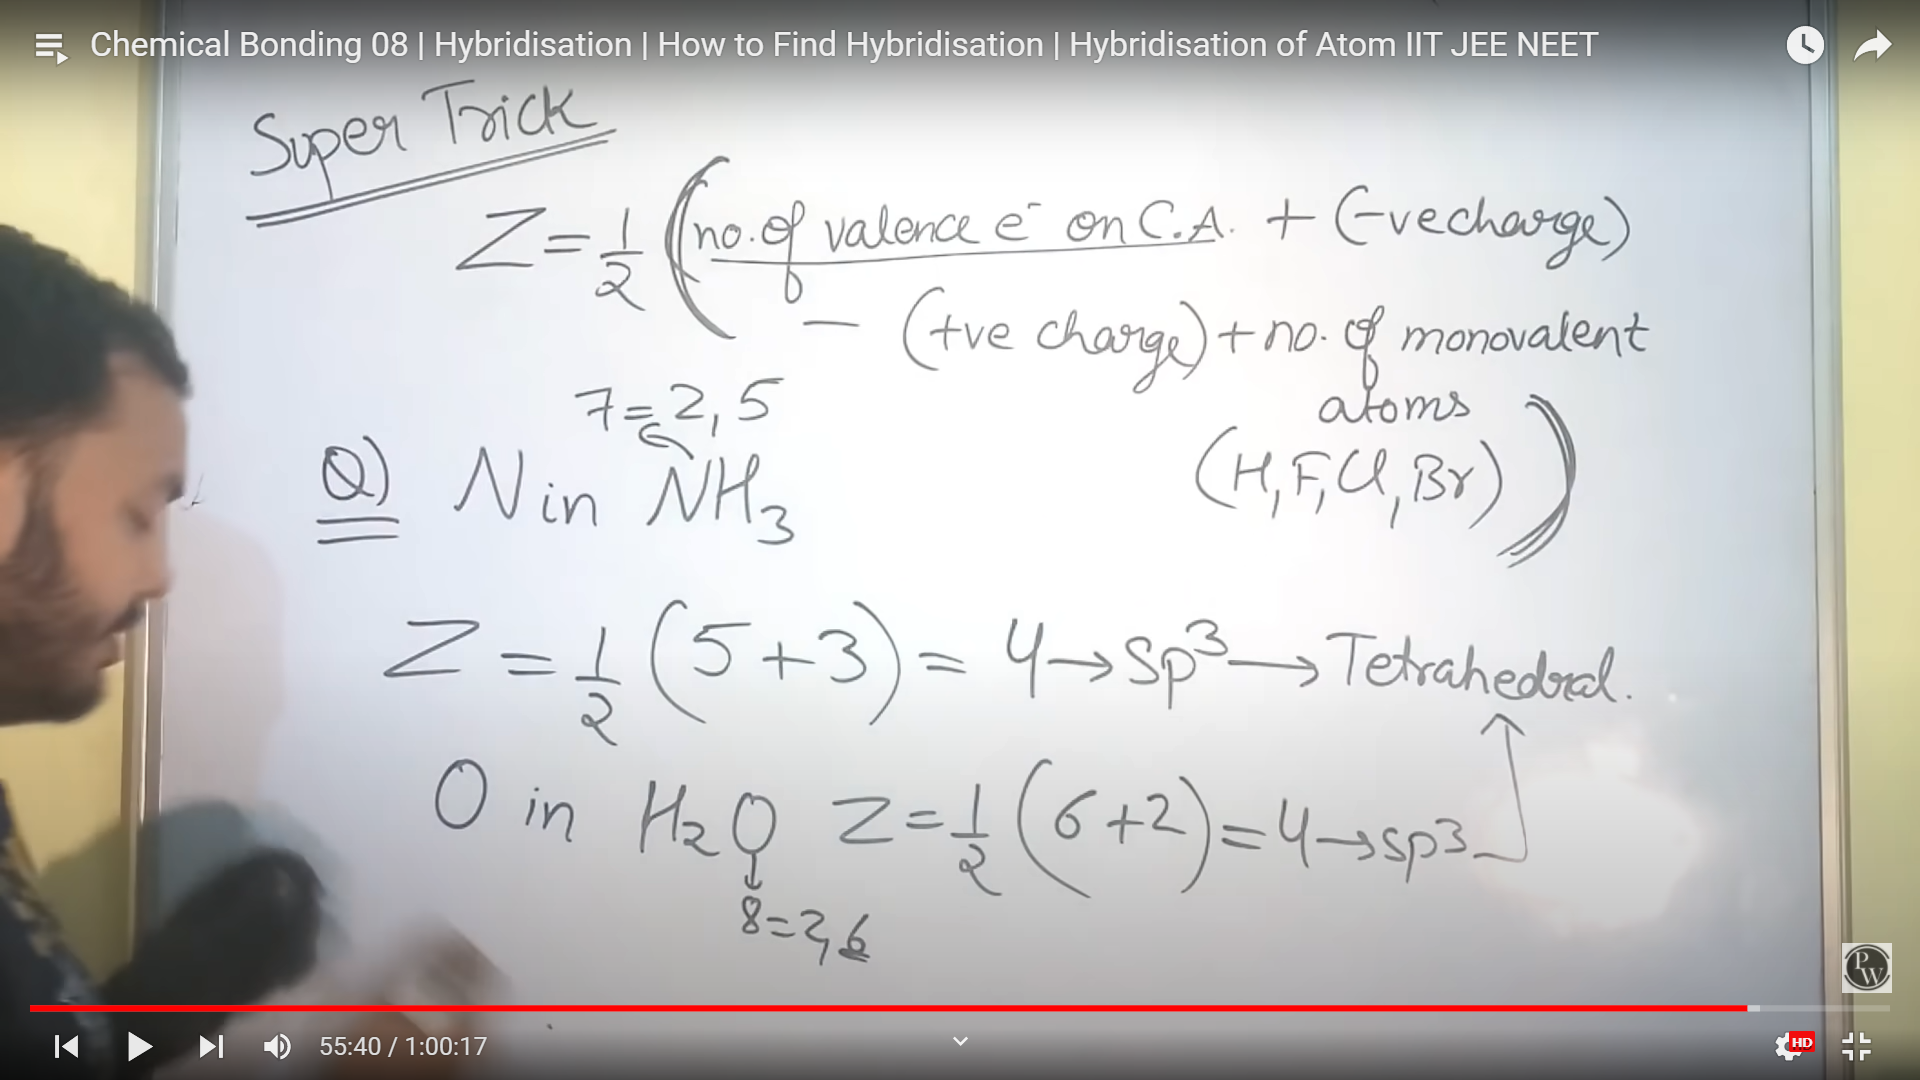 Chemical Bonding 08 | Hybridisation | How to Find Hybridisation | Hybridisation of Atom IIT JEE NEET
Super Trick
Z = 1/2 (no. of valence e⁻ on C.A. + (-ve charge)
— (+ve charge) + no. of monovalent
atoms
(H, F, Cl, Br))
7 = 2, 5
Q) N in NH₃
Z = 1/2 (5+3) = 4 → sp³ → Tetrahedral.
O in H₂O Z = 1/2 (6+2) = 4 → sp³
8 = 2, 6
PW
55:40 / 1:00:17
HD